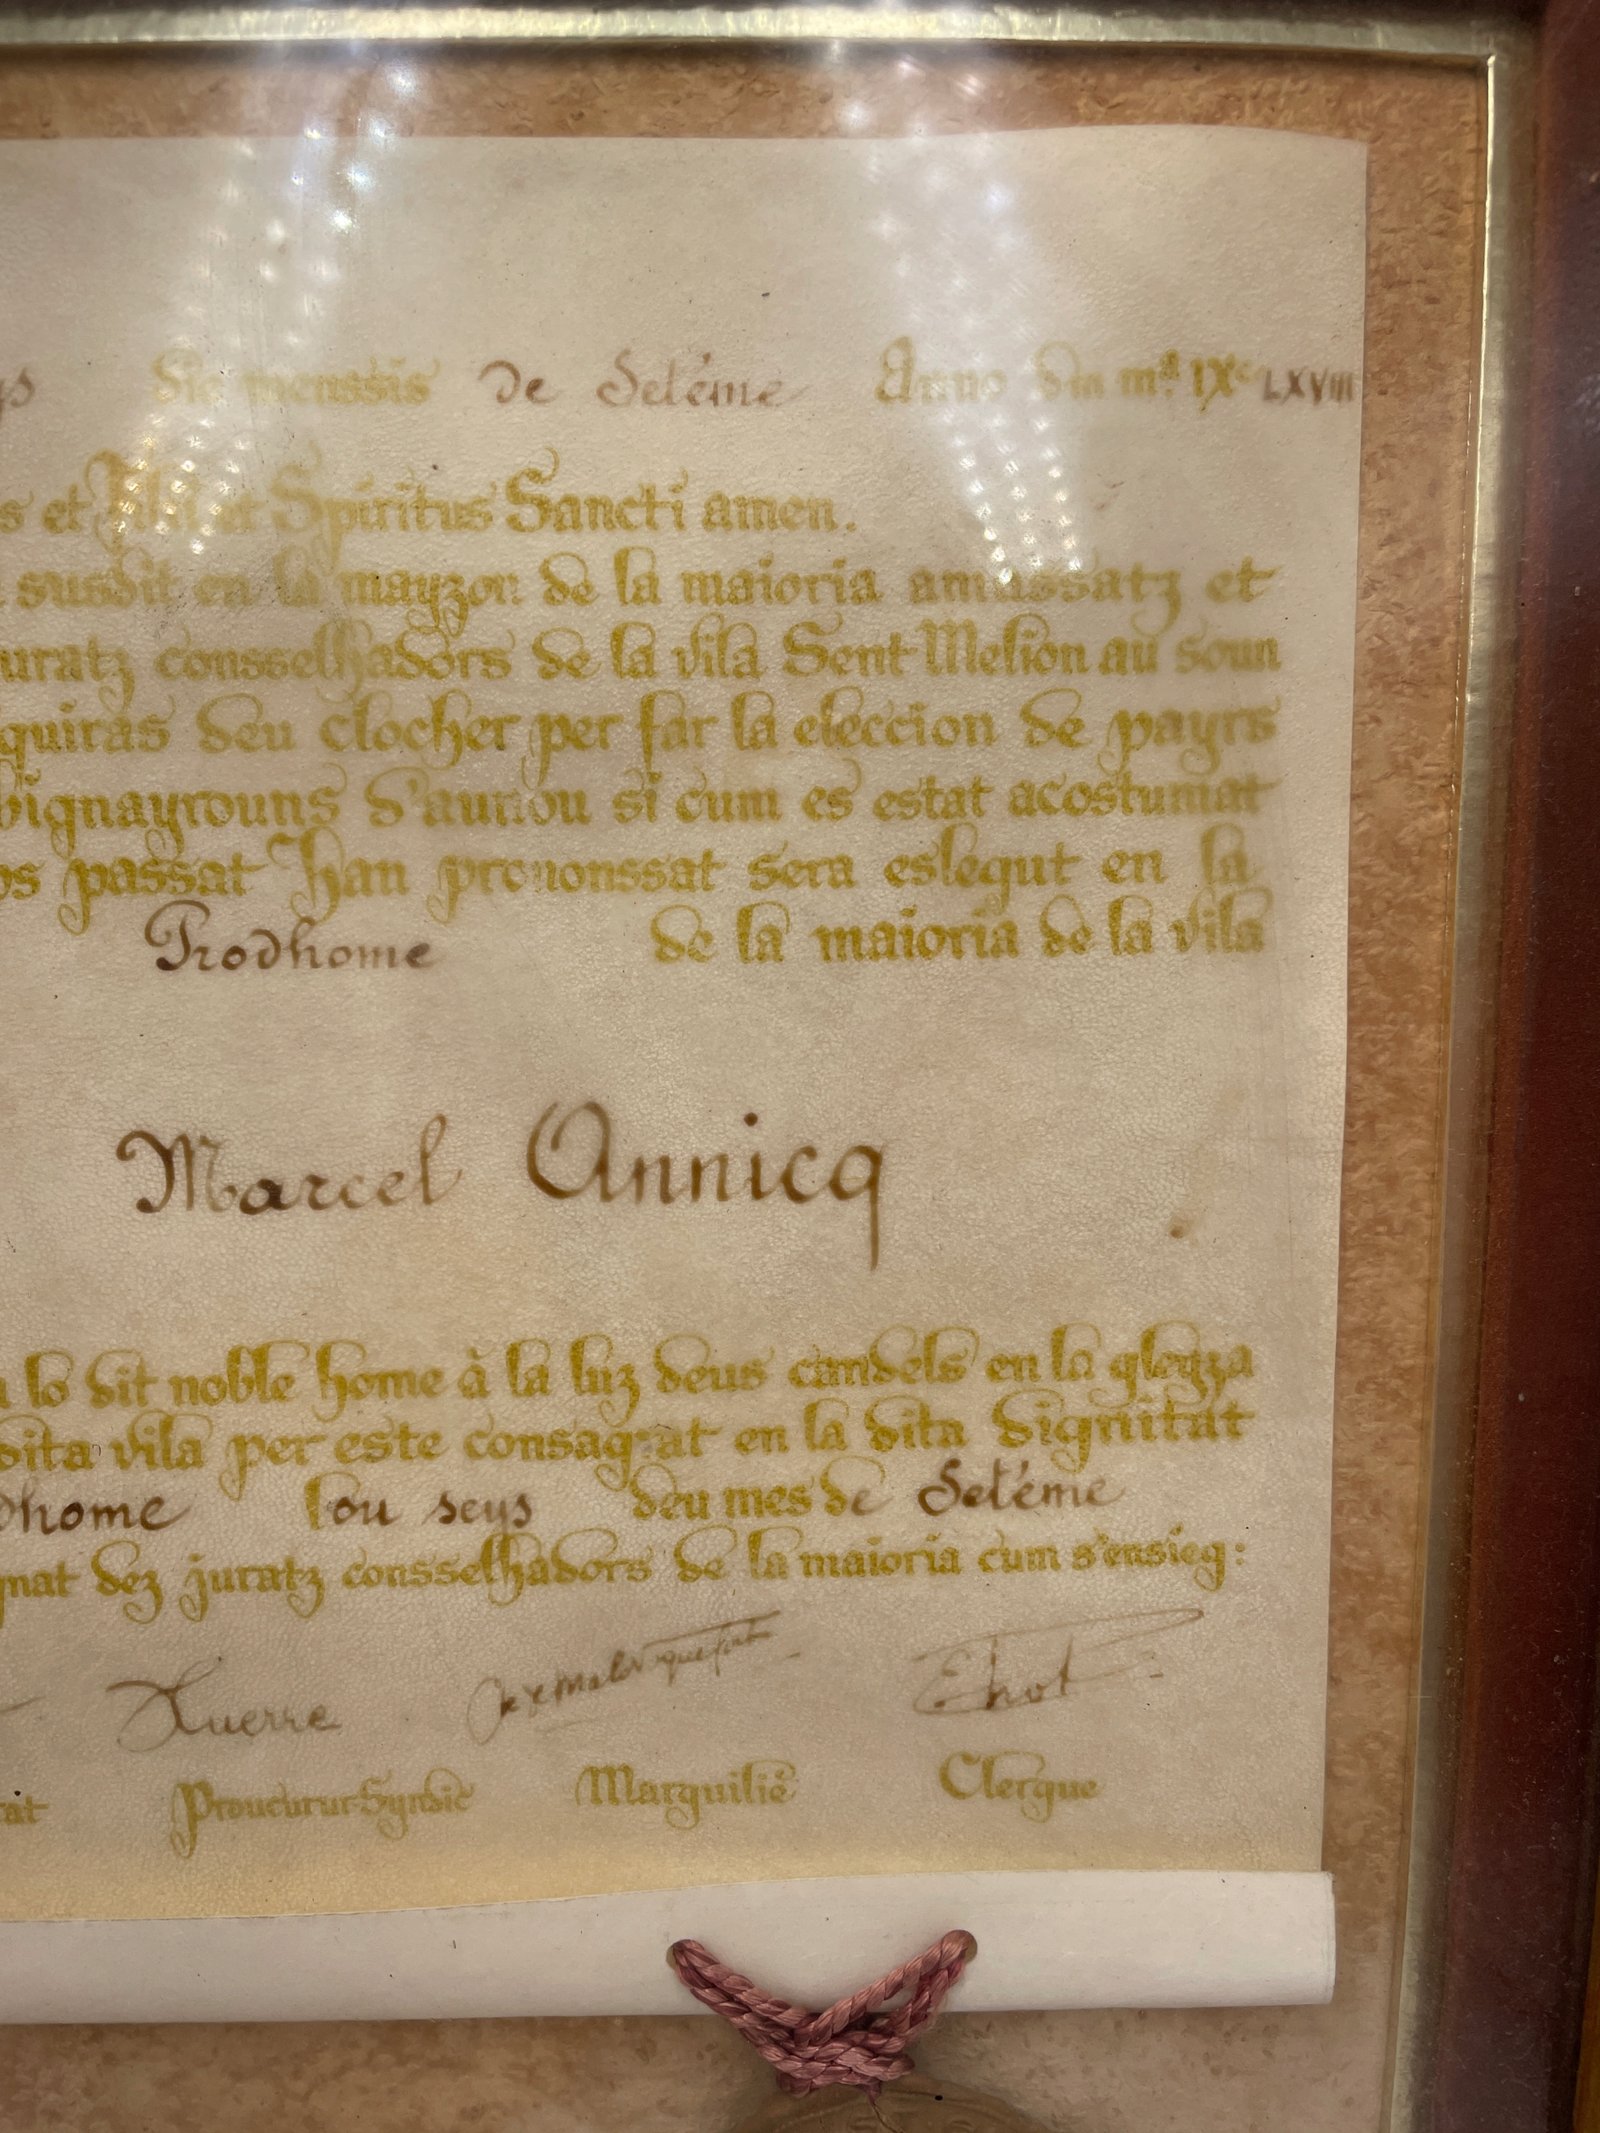 die menssis de Setéme Anno Dm mª IXᶜ LXVIII
s et Filii et Spiritus Sancti amen.
susdit en la mayzon de la maioria amassatz et
uratz consselhadors de la vila Sent Melion au soun
quiras deu clocher per far la eleccion de payrs
bignayrouns d'auriou si cum es estat acostumat
ps passat Than prononssat sera eslegut en la
Prodhome de la maioria de la vila
Marcel Annicq
lo dit noble home à la luz deus candels en la gleyza
dita vila per este consagrat en la dita dignitat
dhome lou seys deu mes de Setéme
gnat dez juratz consselhadors de la maioria cum s'ensieg:
Querre
rat Proucurur Syndic Marguilié Clergue